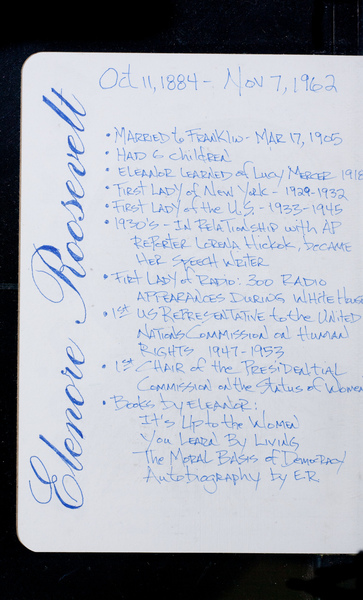 Elenore Roosevelt
Oct 11, 1884 - Nov 7, 1962
• MARRIED to FRANKLIN - MAR 17, 1905
• HAD 6 children
• ELEANOR LEARNED of Lucy MERCER 1918
• FIRST LADY of NEW YORK - 1929-1932
• FIRST LADY of the U.S. - 1933-1945
• 1930's - IN RELATIONSHIP with AP
REPORTER LORENA Hickok, BECAME
HER SPEECH WRITER
• FIRST LADY of RADIO: 300 RADIO
APPEARANCES DURING White House
• 1st US REPRESENTATIVE to the UNITED
NATIONS COMMISSION on HUMAN
RIGHTS 1947-1953
• 1st CHAIR of the PRESIDENTIAL
COMMISSION on the STATUS of WOMEN
• BOOKS by ELEANOR:
It's Up to the WOMEN
YOU LEARN BY LIVING
The MORAL BASIS of DEMOCRACY
Autobiography by E.R.